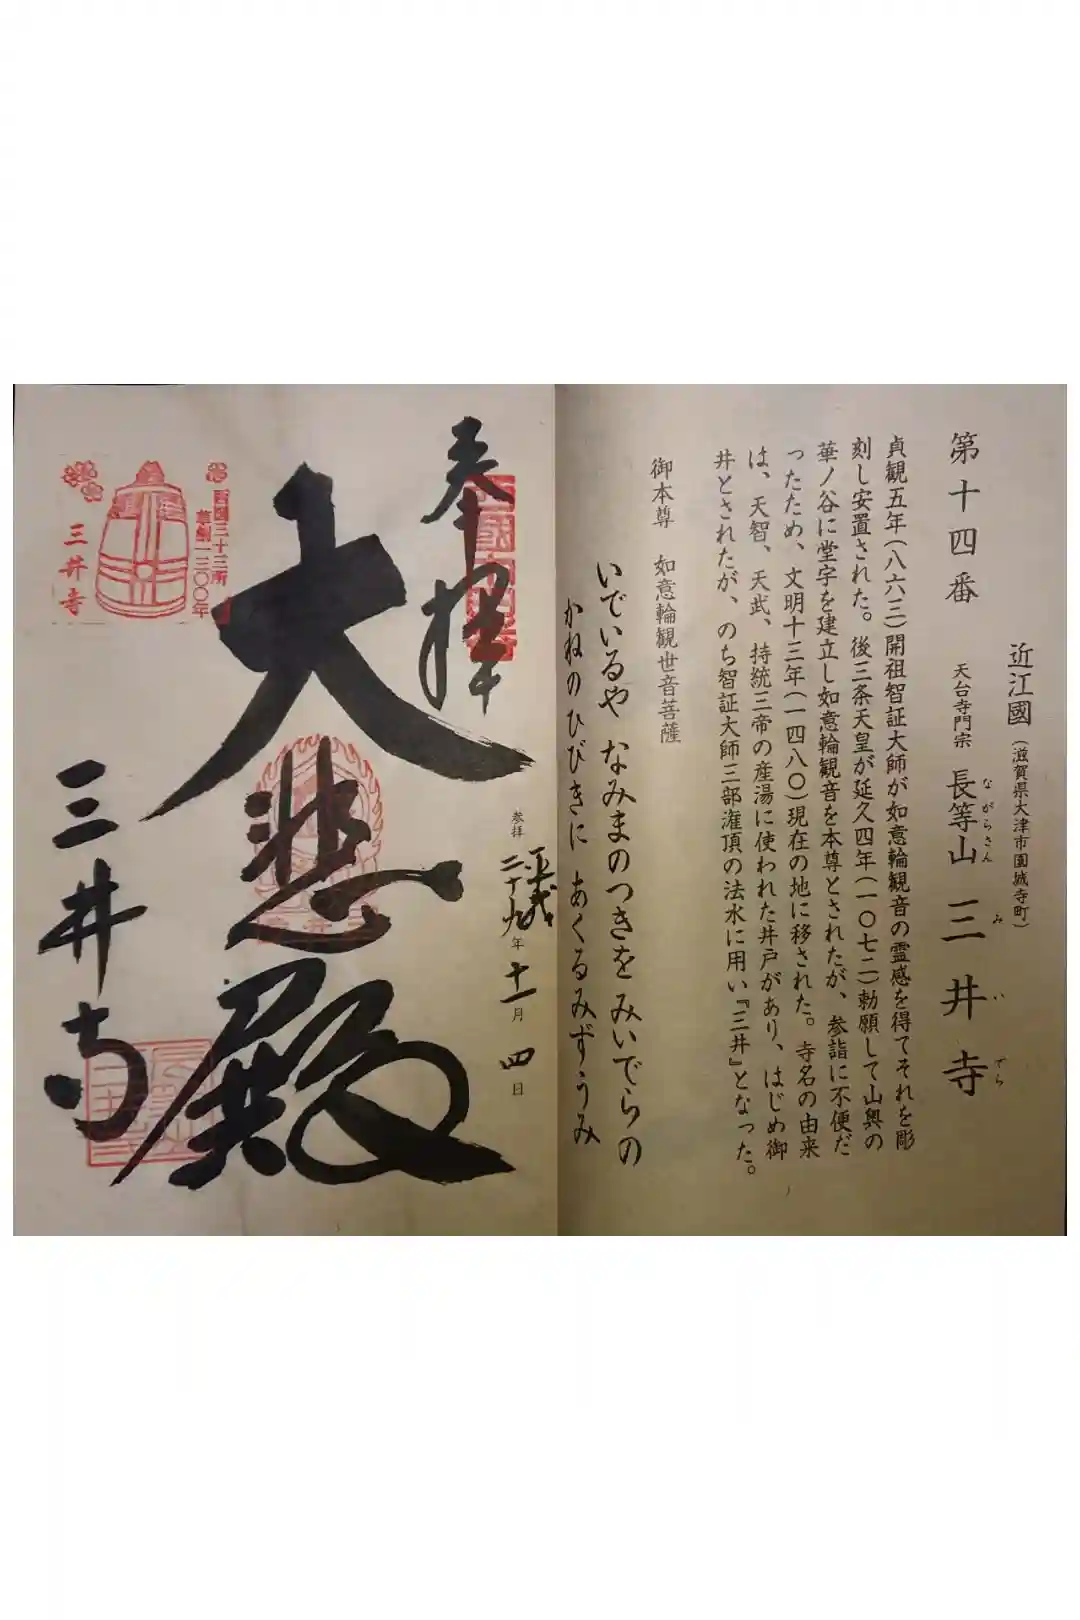 近江國(滋賀県大津市園城寺町)
第十四番 天台寺門宗 長等山 三井寺
ながらさん み い でら
貞観五年(八六三)開祖智証大師が如意輪観音の霊感を得てそれを彫
刻し安置された。後三条天皇が延久四年(一〇七二)勅願して山興の
華ノ谷に堂宇を建立し如意輪観音を本尊とされたが、参詣に不便だ
ったため、文明十三年(一四八〇)現在の地に移された。寺名の由来
は、天智、天武、持統三帝の産湯に使われた井戸があり、はじめ御
井とされたが、のち智証大師三部潅頂の法水に用い『三井』となった。
御本尊 如意輪観世音菩薩
いでいるや なみまのつきを みいでらの
かねのひびきに あくるみずうみ
奉拝
参拝 平成二十九年十一月四日
大悲殿
三井寺
西国三十三所
草創一三〇〇年
三井寺